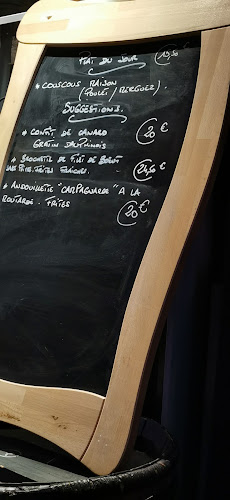 PLAT DU JOUR 19,50
* COUSCOUS MAISON
(POULET / MERGUEZ).
SUGGESTIONS.
* CONFIT DE CANARD 20€
GRATIN DAUPHINOIS
* BROCHETTE DE FILET DE BOEUF 24,50€
* ANDOUILLETTE "CAMPAGNARDE" A LA
MOUTARDE. FRITES 20€